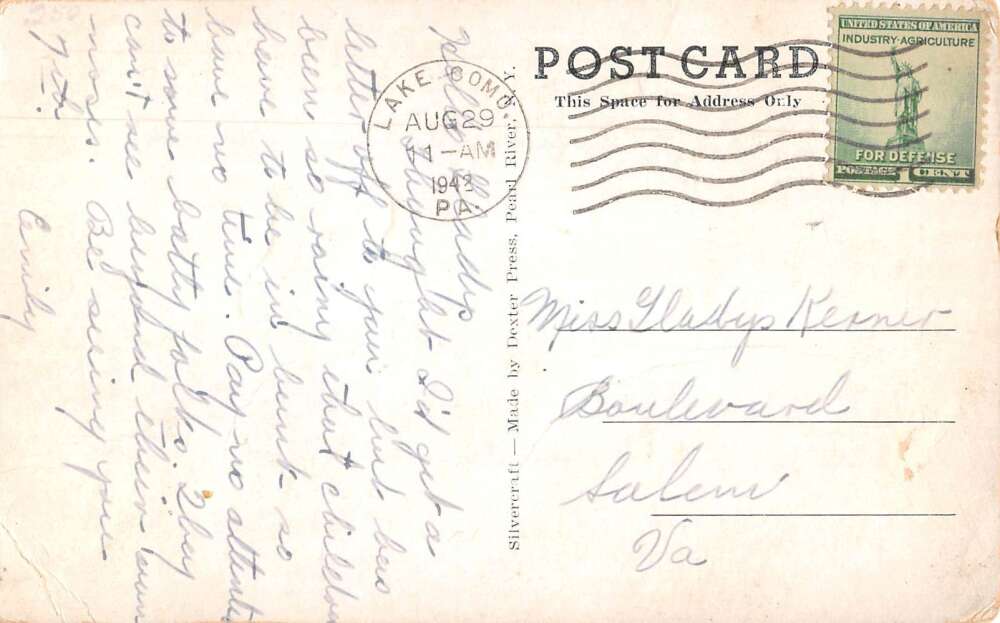 POST CARD
This Space for Address Only
UNITED STATES OF AMERICA
INDUSTRY-AGRICULTURE
FOR DEFENSE
POSTAGE 1 CENT
LAKE COMO
AUG 29
11-AM
1942
PA.
Silvercraft — Made by Dexter Press, Pearl River, N. Y.
Hello Gladys
Thought I'd get a
letter off to you but has
been so rainy that children
have to be in bunk so
have no time. Pay no attention
to some batty folks. They
can't see beyond their own
noses. Be seeing you
7th.
Emily
Miss Gladys Kerner
Boulevard
Salem
Va